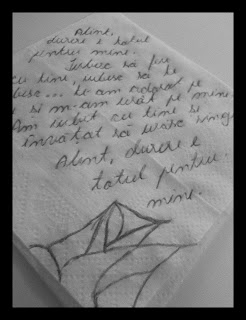 Alint,
durere e totul
pentru mine.
Iubesc să fiu
cu tine, iubesc să te
iubesc... Te-am adorat pe
tine și m-am urât pe mine.
Am iubit cu tine și
învățat să urăsc singur.
Alint, durere e
totul pentru
mine.